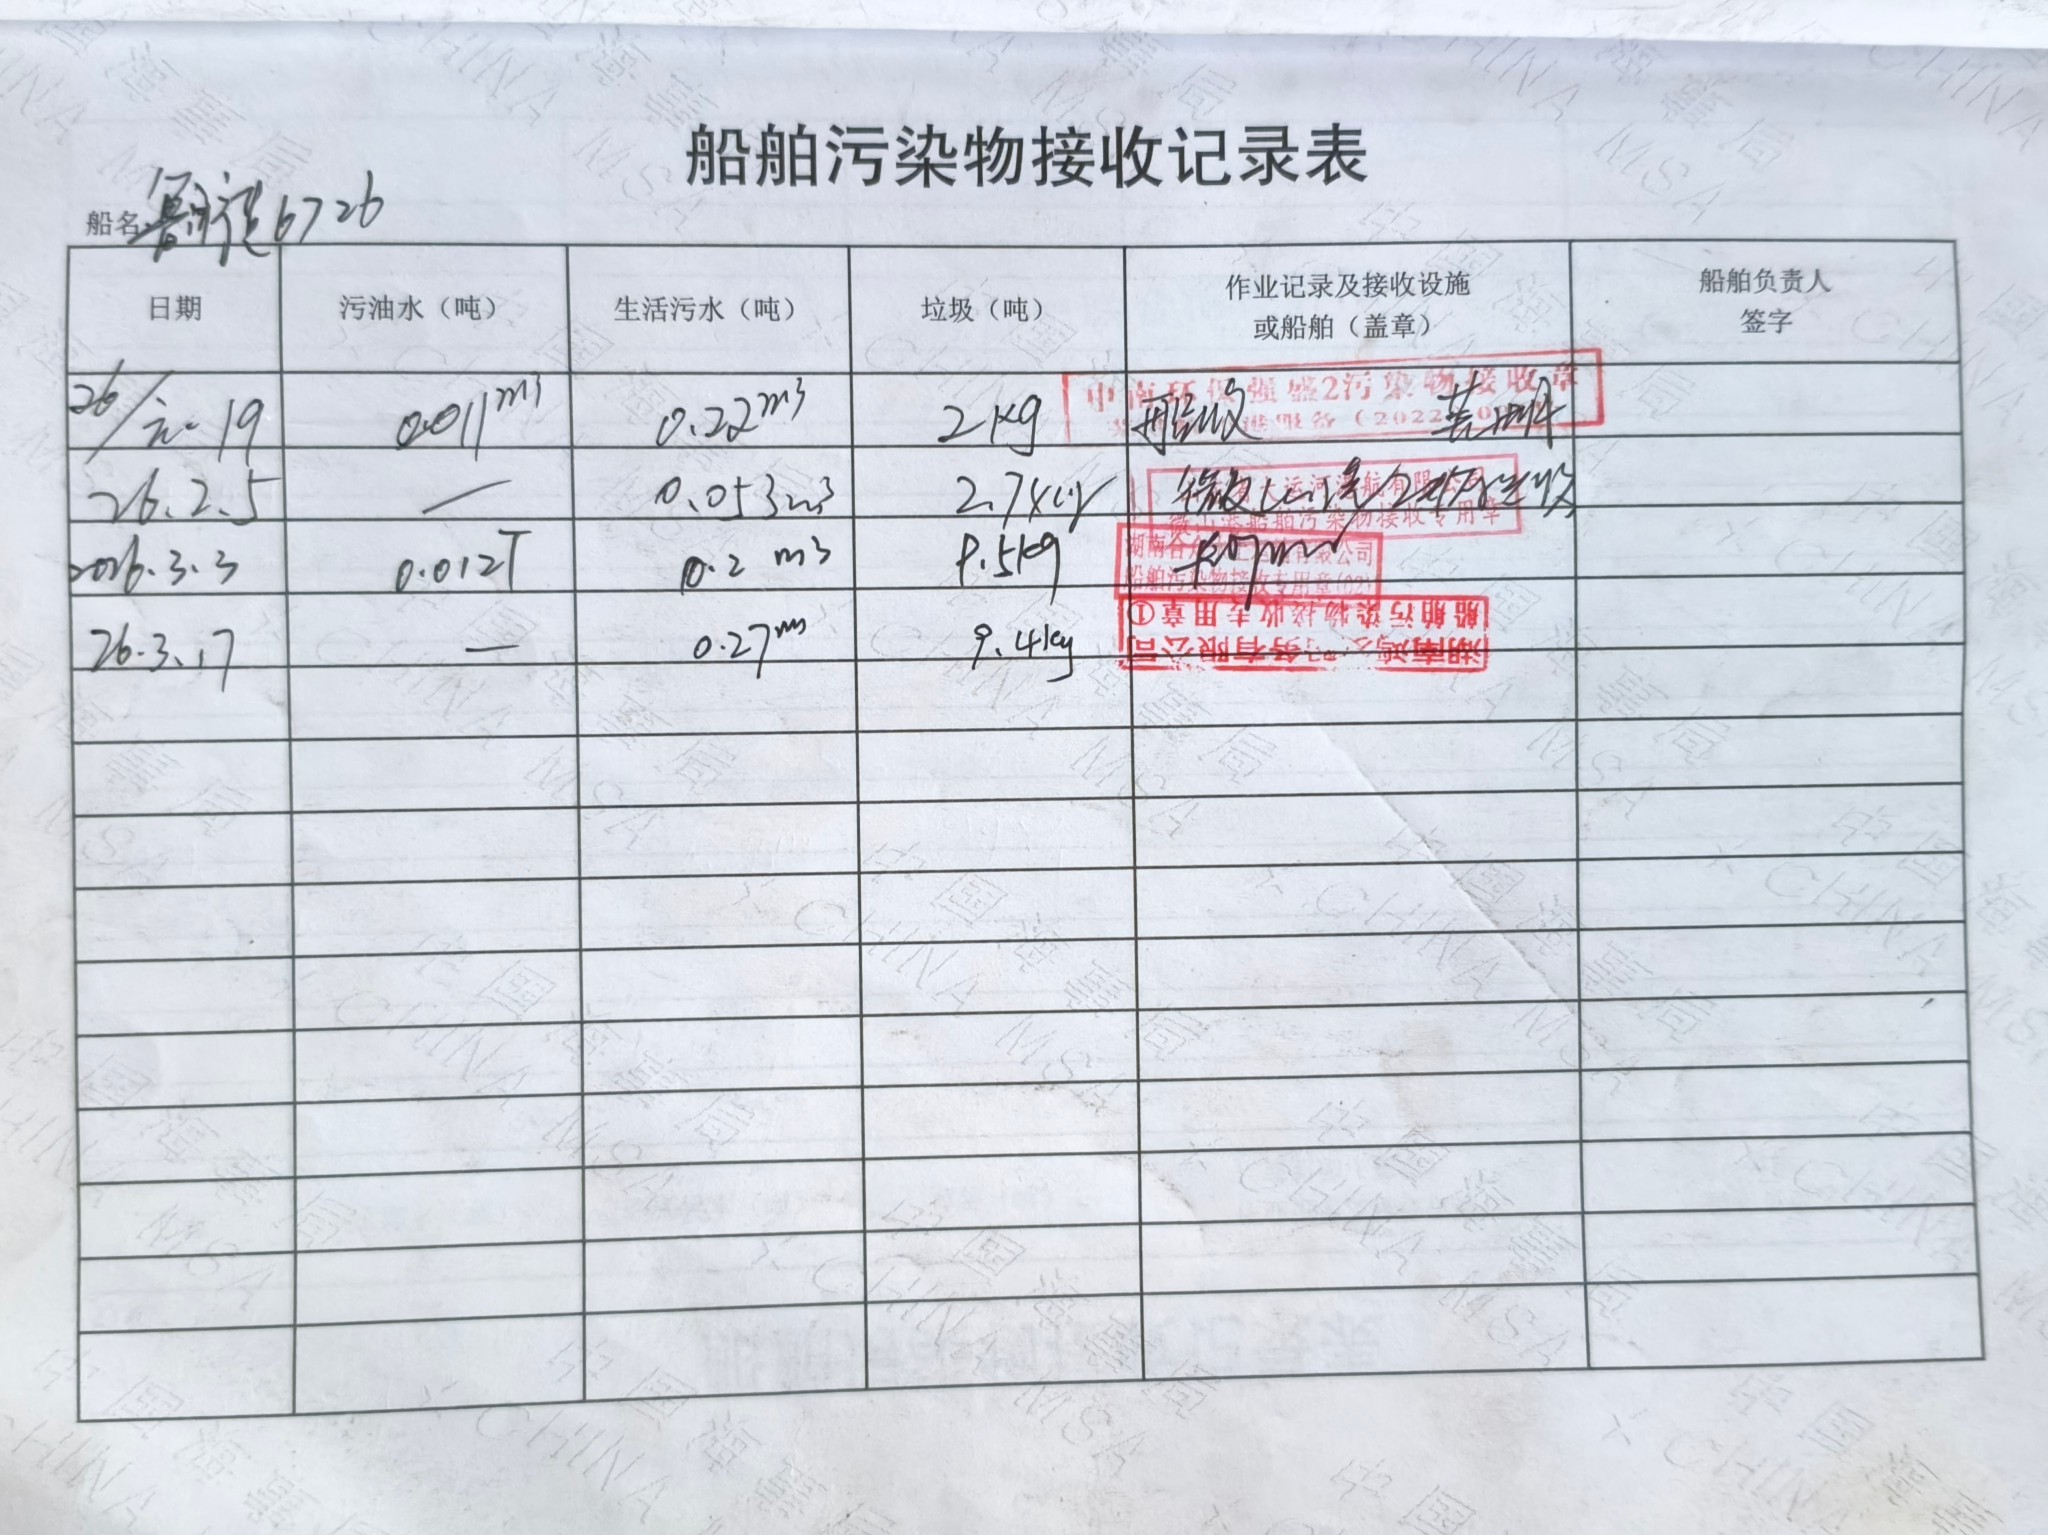 船舶污染物接收记录表
船名 6726
日期 污油水（吨） 生活污水（吨） 垃圾（吨） 作业记录及接收设施或船舶（盖章） 船舶负责人签字
26/元-19 0.011m³ 0.22m³ 2kg 船收
中南环保强盛2污染物接收章
26.2.5 — 0.053m³ 2.7kg
运河港航有限公司
微山港船舶污染物接收专用章
2026.3.3 0.012T 0.2m³ 9.5kg
湖南 有限公司
船舶污染物接收专用章(02)
26.3.17 — 0.27m³ 9.4kg
船舶污染物接收专用章①
湖南鸿 务有限公司
中国海事局
CHINA MSA